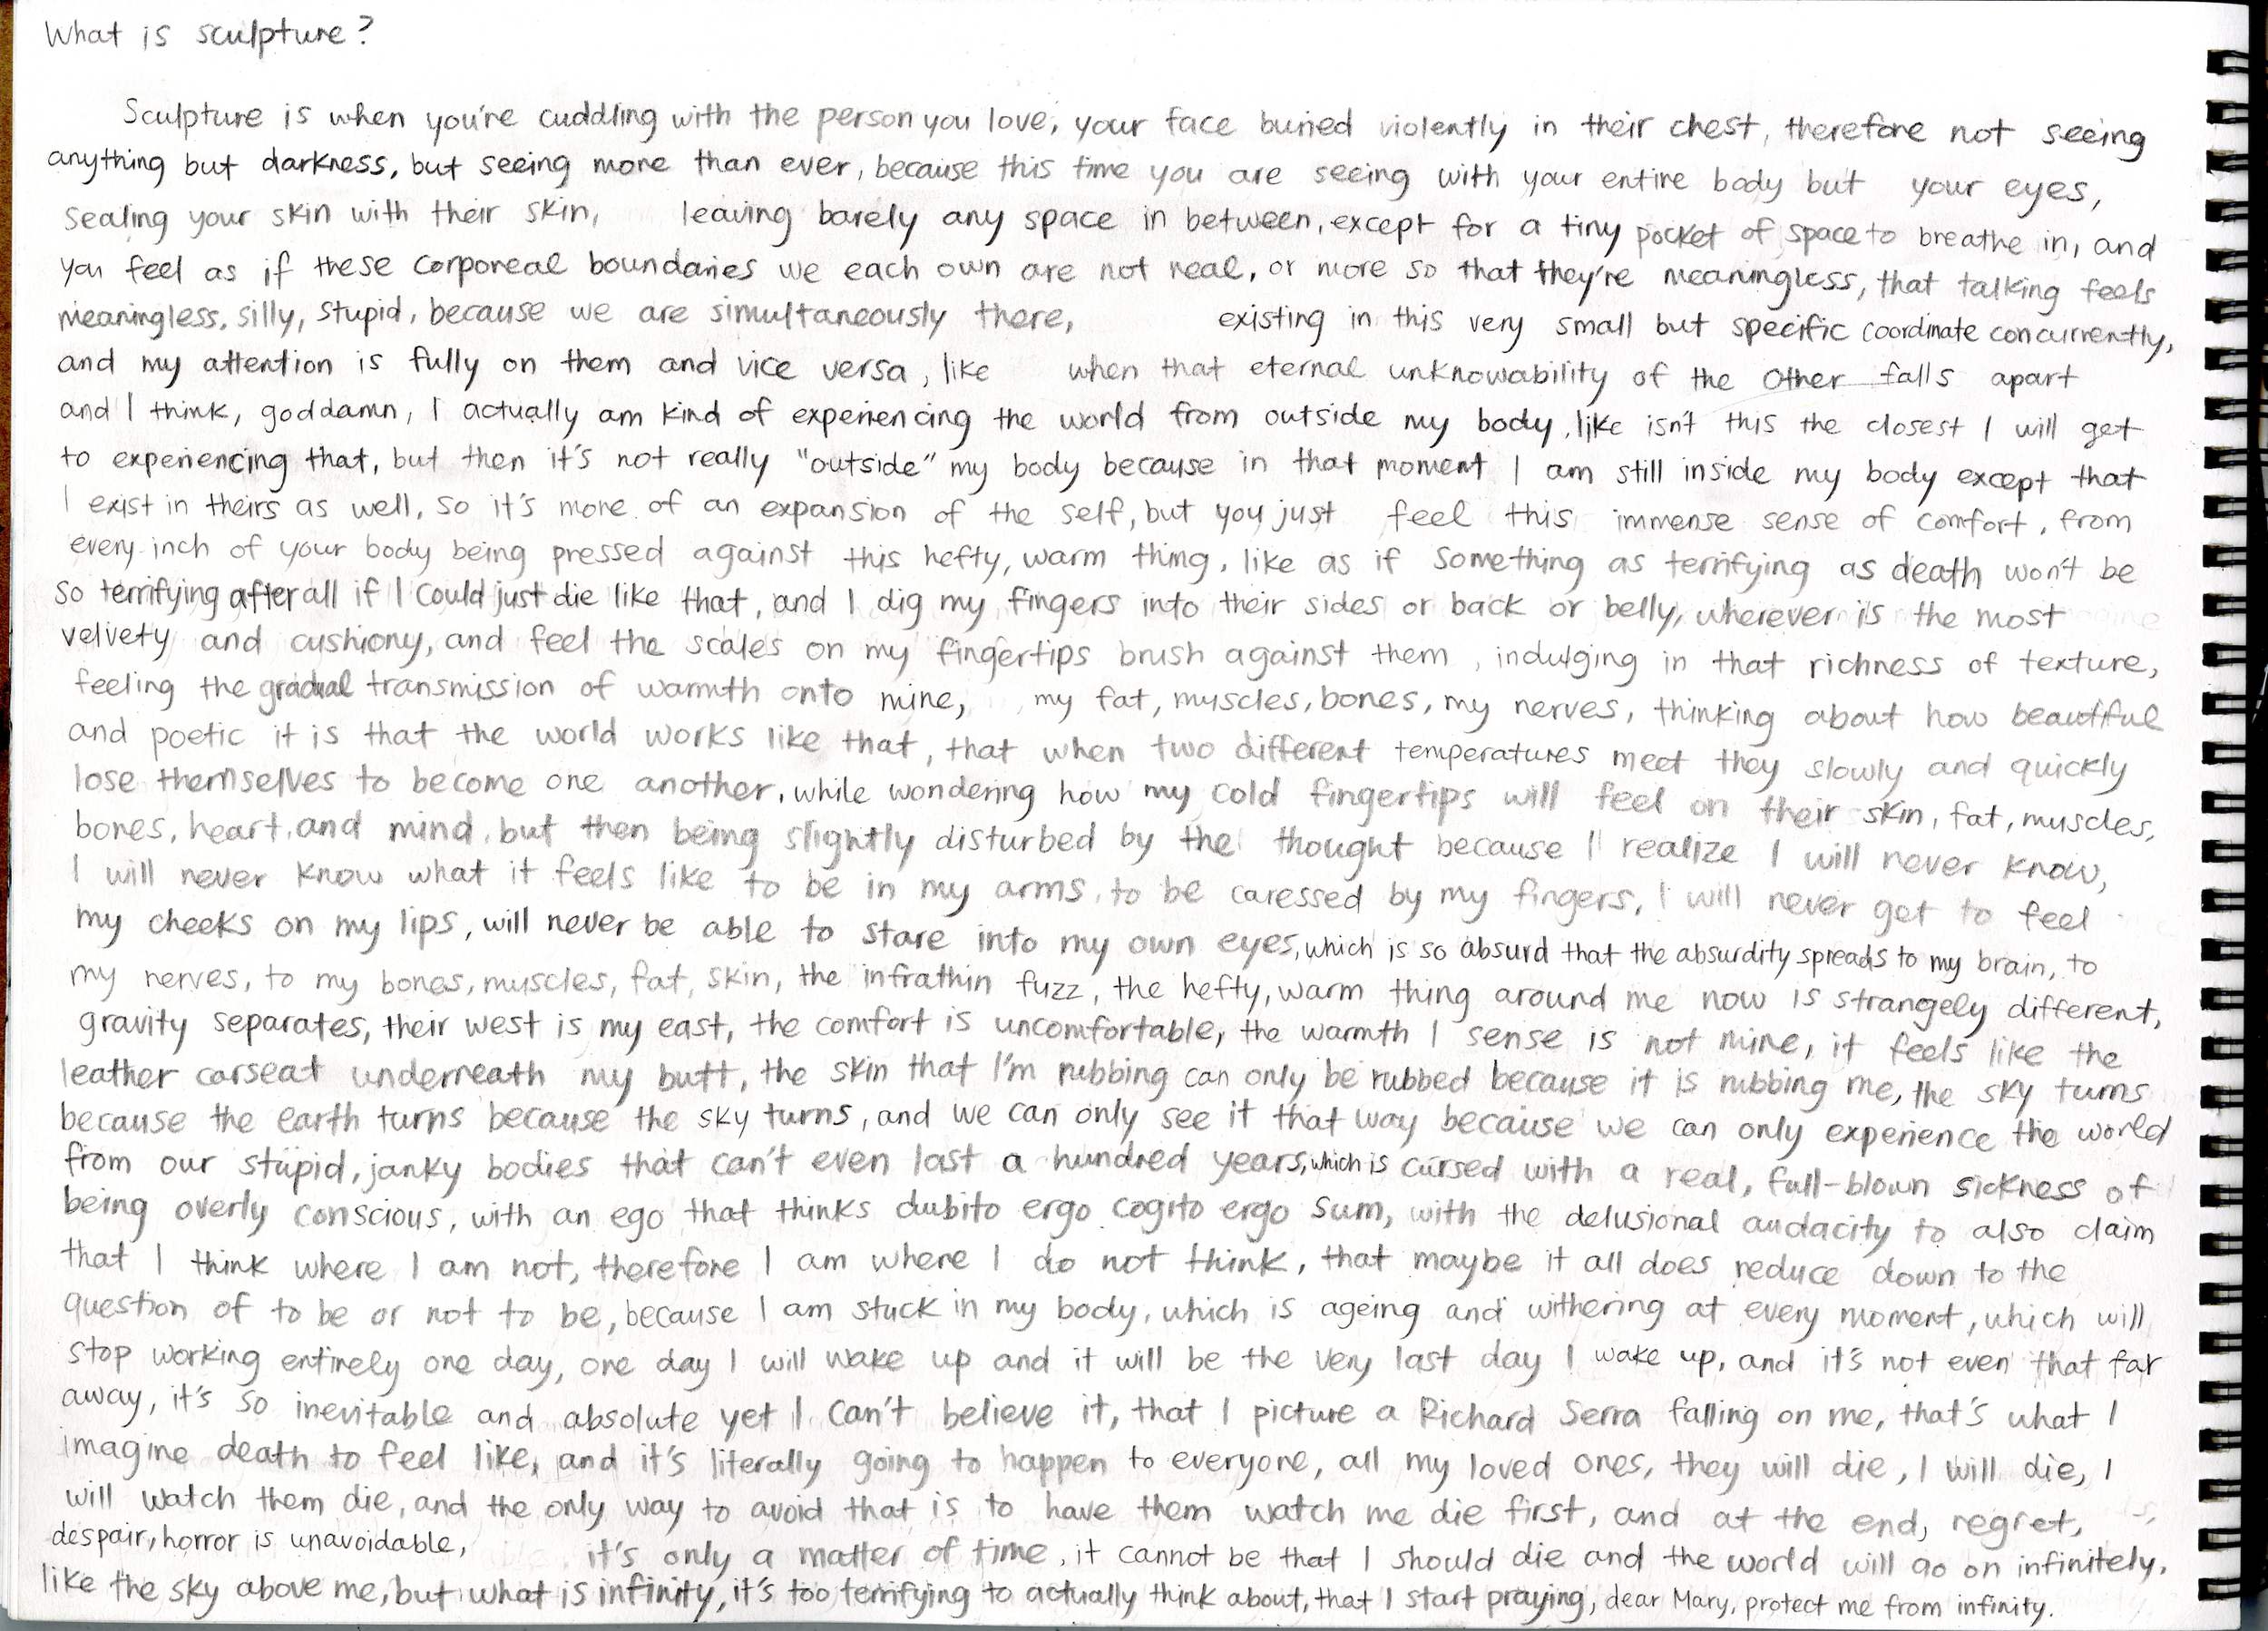 What is sculpture?
Sculpture is when you're cuddling with the person you love, your face buried violently in their chest, therefore not seeing
anything but darkness, but seeing more than ever, because this time you are seeing with your entire body but your eyes,
sealing your skin with their skin, leaving barely any space in between, except for a tiny pocket of space to breathe in, and
you feel as if these corporeal boundaries we each own are not real, or more so that they're meaningless, that talking feels
meaningless, silly, stupid, because we are simultaneously there, existing in this very small but specific coordinate concurrently,
and my attention is fully on them and vice versa, like when that eternal unknowability of the Other falls apart
and I think, goddamn, I actually am kind of experiencing the world from outside my body, like isn't this the closest I will get
to experiencing that, but then it's not really "outside" my body because in that moment I am still inside my body except that
I exist in theirs as well, so it's more of an expansion of the self, but you just feel this immense sense of comfort, from
every inch of your body being pressed against this hefty, warm thing, like as if something as terrifying as death won't be
so terrifying after all if I could just die like that, and I dig my fingers into their sides or back or belly, wherever is the most
velvety and cushiony, and feel the scales on my fingertips brush against them, indulging in that richness of texture,
feeling the gradual transmission of warmth onto mine, my fat, muscles, bones, my nerves, thinking about how beautiful
and poetic it is that the world works like that, that when two different temperatures meet they slowly and quickly
lose themselves to become one another, while wondering how my cold fingertips will feel on their skin, fat, muscles,
bones, heart, and mind, but then being slightly disturbed by the thought because I realize I will never know,
I will never know what it feels like to be in my arms, to be caressed by my fingers, I will never get to feel
my cheeks on my lips, will never be able to stare into my own eyes, which is so absurd that the absurdity spreads to my brain, to
my nerves, to my bones, muscles, fat, skin, the infrathin fuzz, the hefty, warm thing around me now is strangely different,
gravity separates, their west is my east, the comfort is uncomfortable, the warmth I sense is not mine, it feels like the
leather carseat underneath my butt, the skin that I'm rubbing can only be rubbed because it is rubbing me, the sky turns
because the earth turns because the sky turns, and we can only see it that way because we can only experience the world
from our stupid, janky bodies that can't even last a hundred years, which is cursed with a real, full-blown sickness of
being overly conscious, with an ego that thinks dubito ergo cogito ergo sum, with the delusional audacity to also claim
that I think where I am not, therefore I am where I do not think, that maybe it all does reduce down to the
question of to be or not to be, because I am stuck in my body, which is ageing and withering at every moment, which will
stop working entirely one day, one day I will wake up and it will be the very last day I wake up, and it's not even that far
away, it's so inevitable and absolute yet I can't believe it, that I picture a Richard Serra falling on me, that's what I
imagine death to feel like, and it's literally going to happen to everyone, all my loved ones, they will die, I will die, I
will watch them die, and the only way to avoid that is to have them watch me die first, and at the end, regret,
despair, horror is unavoidable, it's only a matter of time, it cannot be that I should die and the world will go on infinitely,
like the sky above me, but what is infinity, it's too terrifying to actually think about, that I start praying, dear Mary, protect me from infinity.